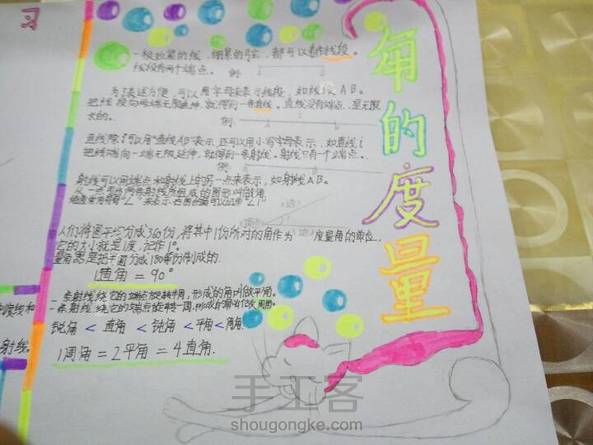 角的度量
一根拉紧的线,绷紧的弦,都可以看作线段。
线段有两个端点。 例:
为了表述方便,可以用字母表示线段,如线段AB。
把线段向两端无限延伸,就得到一条直线。直线没有端点,是无限
长的。 例:
直线除了可以用"直线AB"表示,还可以用小写字母表示,如直线l
把线段向一端无限延伸,就得到一条射线。射线只有一个端点。
例
射线可以用端点和射线上的另一点来表示,如射线AB。
从一点引出两条射线所组成的图形叫做角。
人们将圆平均分成360份,将其中1份所对的角作为 度量角的单位,
它的大小就是1度,记作1°。
量角器是把半圆分成180等份制成的.
1直角=90°
一条射线绕它的端点旋转半周,形成的角叫做平角。
一条射线绕它的端点旋转一周,形成的角叫做周角。
锐角<直角<钝角<平角<周角
1周角=2平角=4直角.
射线
手工客
shougongke.com